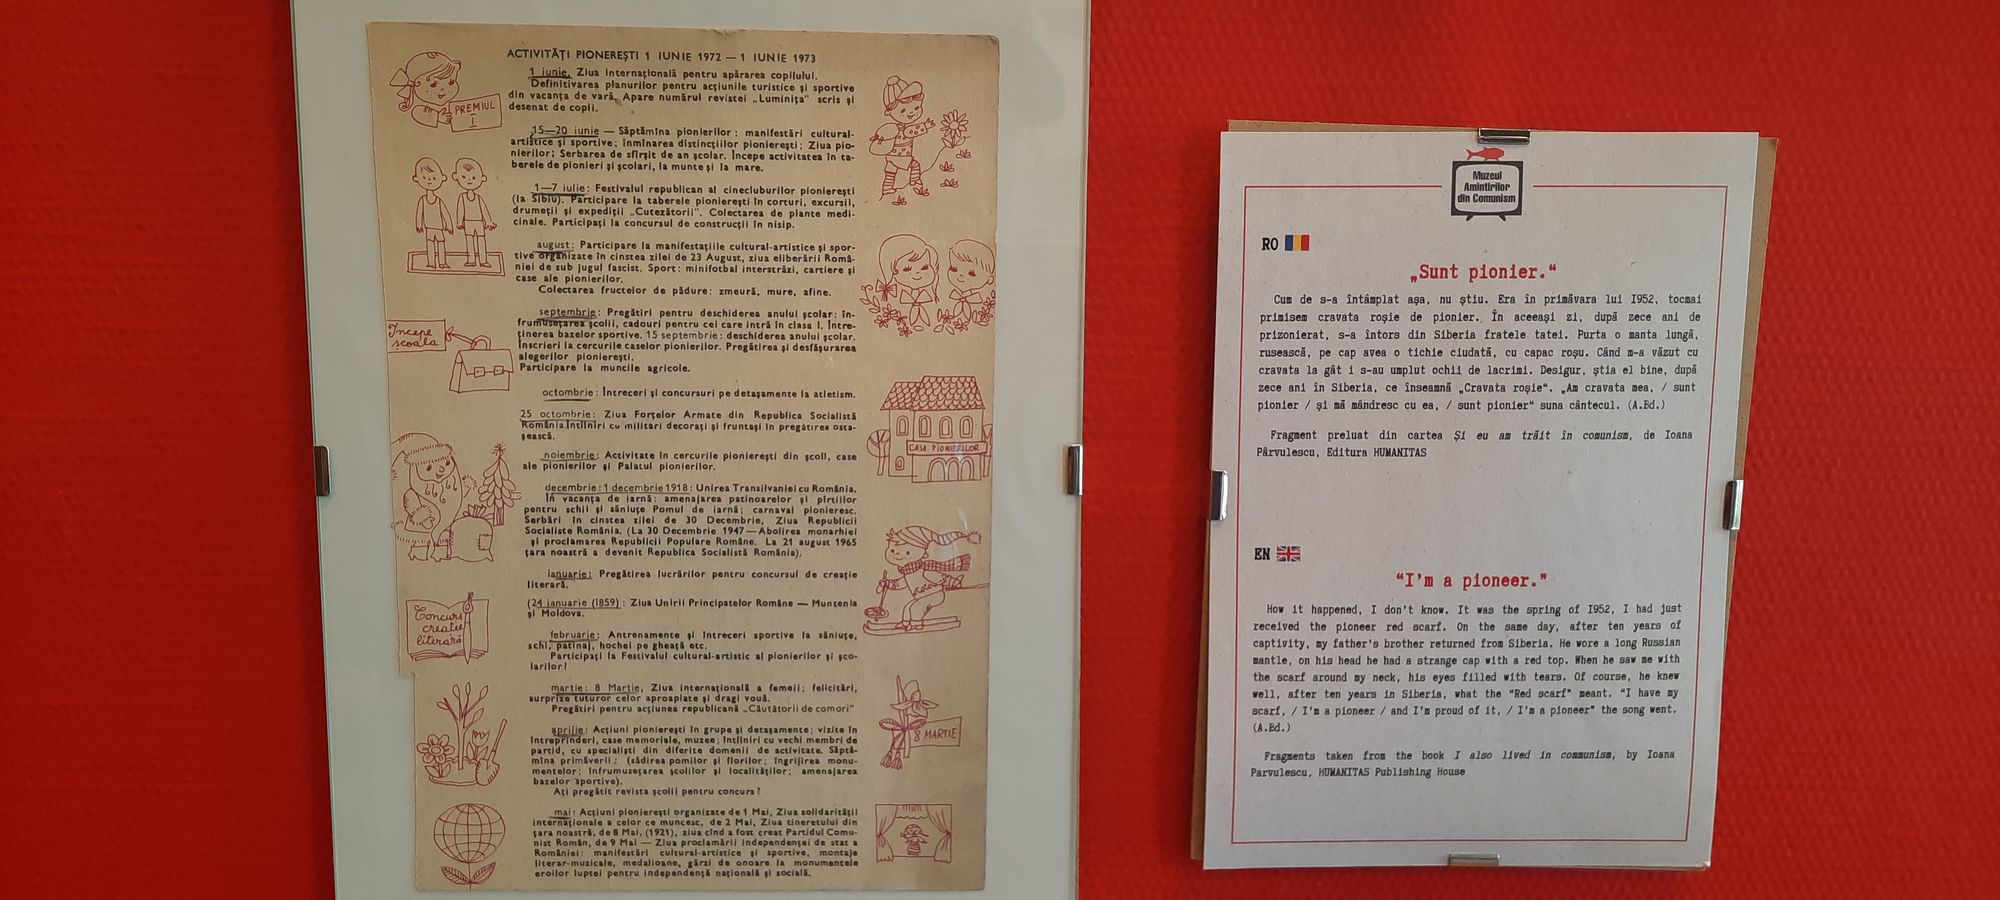 ACTIVITĂȚI PIONEREȘTI 1 IUNIE 1972 — 1 IUNIE 1973
1 iunie. Ziua internațională pentru apărarea copilului.
Definitivarea planurilor pentru acțiunile turistice și sportive
din vacanța de vară. Apare numărul revistei „Luminița" scris și
desenat de copii.
15—20 iunie — Săptămîna pionierilor: manifestări cultural-
artistice și sportive; înmînarea distincțiilor pionierești; Ziua pio-
nierilor; Serbarea de sfîrșit de an școlar. Începe activitatea în ta-
berele de pionieri și școlari, la munte și la mare.
1—7 iulie: Festivalul republican al cinecluburilor pionierești
(la Sibiu). Participare la taberele pionierești în corturi, excursii,
drumeții și expediții „Cutezătorii". Colectarea de plante medi-
cinale. Participați la concursul de construcții în nisip.
august: Participare la manifestațiile cultural-artistice și spor-
tive organizate în cinstea zilei de 23 August, ziua eliberării Româ-
niei de sub jugul fascist. Sport: minifotbal interstrăzi, cartiere și
case ale pionierilor.
Colectarea fructelor de pădure: zmeură, mure, afine.
septembrie: Pregătiri pentru deschiderea anului școlar: în-
frumusețarea școlii, cadouri pentru cei care intră în clasa I. Între-
ținerea bazelor sportive. 15 septembrie: deschiderea anului școlar.
Înscrieri la cercurile caselor pionierilor. Pregătirea și desfășurarea
alegerilor pionierești.
Participare la muncile agricole.
octombrie: Întreceri și concursuri pe detașamente la atletism.
25 octombrie: Ziua Forțelor Armate din Republica Socialistă
România. Întîlniri cu militari decorați și fruntași în pregătirea ostă-
șească.
noiembrie: Activitate în cercurile pionierești din școli, case
ale pionierilor și Palatul pionierilor.
decembrie: 1 decembrie 1918: Unirea Transilvaniei cu România.
În vacanța de iarnă: amenajarea patinoarelor și pîrtiilor
pentru schii și săniuțe Pomul de iarnă; carnaval pionieresc.
Serbări în cinstea zilei de 30 Decembrie, Ziua Republicii
Socialiste România. (La 30 Decembrie 1947—Abolirea monarhiei
și proclamarea Republicii Populare Române. La 21 august 1965
țara noastră a devenit Republica Socialistă România).
ianuarie: Pregătirea lucrărilor pentru concursul de creație
literară.
(24 ianuarie (1859): Ziua Unirii Principatelor Române — Muntenia
și Moldova.
februarie: Antrenamente și întreceri sportive la săniuțe,
schi, patinaj, hochei pe gheață etc.
Participați la Festivalul cultural-artistic al pionierilor și șco-
larilor?
martie: 8 Martie, Ziua internațională a femeii; felicitări,
surprize tuturor celor apropiate și dragi vouă.
Pregătiri pentru acțiunea republicană „Căutătorii de comori"
aprilie: Acțiuni pionierești în grupe și detașamente; vizite în
întreprinderi, case memoriale, muzee; întîlniri cu vechi membri de
partid, cu specialiști din diferite domenii de activitate. Săptă-
mîna primăverii: (sădirea pomilor și florilor; îngrijirea monu-
mentelor; înfrumusețarea școlilor și localităților; amenajarea
bazelor sportive).
Ați pregătit revista școlii pentru concurs?
mai: Acțiuni pionierești organizate de 1 Mai, Ziua solidarității
internaționale a celor ce muncesc, de 2 Mai, Ziua tineretului din
țara noastră, de 8 Mai, (1921), ziua cînd a fost creat Partidul Comu-
nist Român, de 9 Mai — Ziua proclamării independenței de stat a
României: manifestări cultural-artistice și sportive, montaje
literar-muzicale, medalioane, gărzi de onoare la monumentele
eroilor luptei pentru independență națională și socială.
PREMIUL
I
Începe
școala
CASA PIONIERILOR
Concurs
creație
literară
8 MARTIE
Muzeul
Amintirilor
din Comunism
RO
„Sunt pionier."
Cum de s-a întâmplat așa, nu știu. Era în primăvara lui 1952, tocmai
primisem cravata roșie de pionier. În aceeași zi, după zece ani de
prizonierat, s-a întors din Siberia fratele tatei. Purta o manta lungă,
rusească, pe cap avea o tichie ciudată, cu capac roșu. Când m-a văzut cu
cravata la gât i s-au umplut ochii de lacrimi. Desigur, știa el bine, după
zece ani în Siberia, ce înseamnă „Cravata roșie". „Am cravata mea, / sunt
pionier / și mă mândresc cu ea, / sunt pionier" suna cântecul. (A.Bd.)
Fragment preluat din cartea Și eu am trăit în comunism, de Ioana
Pârvulescu, Editura HUMANITAS
EN
"I'm a pioneer."
How it happened, I don't know. It was the spring of 1952, I had just
received the pioneer red scarf. On the same day, after ten years of
captivity, my father's brother returned from Siberia. He wore a long Russian
mantle, on his head he had a strange cap with a red top. When he saw me with
the scarf around my neck, his eyes filled with tears. Of course, he knew
well, after ten years in Siberia, what the "Red scarf" meant. "I have my
scarf, / I'm a pioneer / and I'm proud of it, / I'm a pioneer" the song went.
(A.Bd.)
Fragments taken from the book I also lived in communism, by Ioana
Parvulescu, HUMANITAS Publishing House